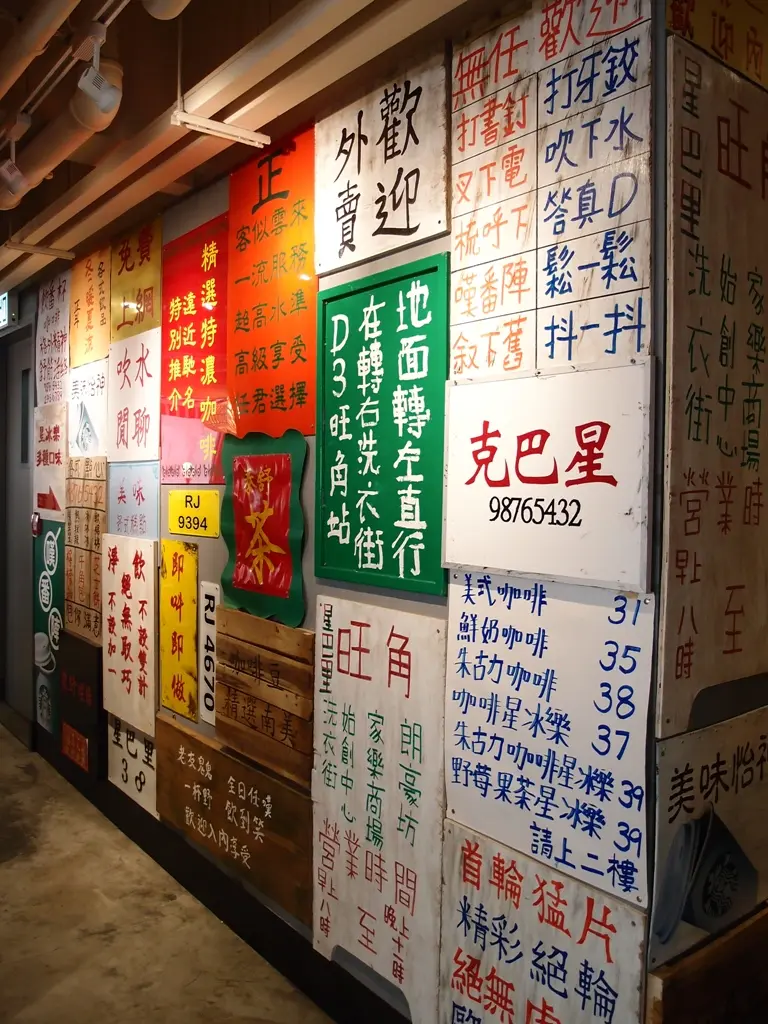 免費
上網
吹水
閒聊
美味
飲 不設雙計
絕無取巧
淨 不設加一
星巴里
38
精選特濃咖啡
遠近馳名
特別推介
RJ
9394
即叫即做
RJ 4670
正
客似雲來
一流服務
超高水準
高級享受
任君選擇
茶
咖啡豆
精選南美
全日任嘆
飲到笑
一杯野
歡迎入內享受
歡迎
外賣
地面轉左直行
在轉右洗衣街
D3旺角站
星巴里
旺角
洗衣街
始創中心
家樂商場
朗豪坊
營業時間
早八時
至
晚上十一時
無任歡迎
打書釘
打牙鉸
叉下電
吹下水
梳呼下
答真D
嘆番陣
鬆一鬆
敘下舊
抖一抖
克巴星
98765432
美式咖啡 31
鮮奶咖啡 35
朱古力咖啡 38
咖啡星冰樂 37
朱古力咖啡星冰樂 39
野莓果茶星冰樂 39
請上二樓
首輪猛片
精彩絕輪
絕無
星巴里
旺角
洗衣街
始創中心
家樂商場
營業時
早八時
至
美味怡神